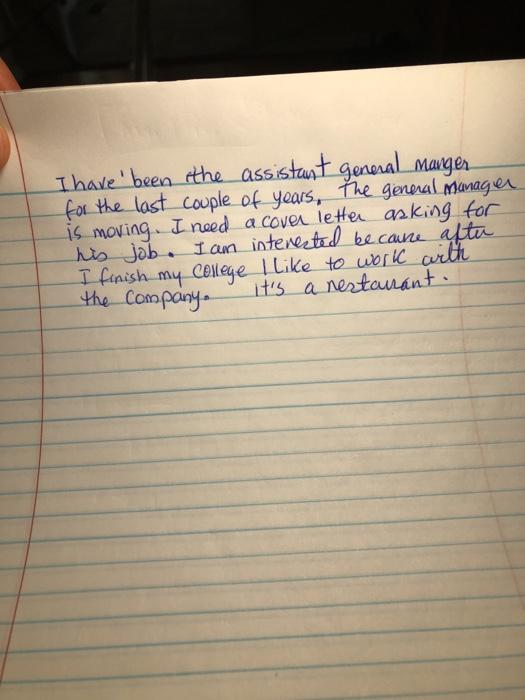 I have' been the assistant general manger
for the last couple of years, The general manager
is moving. I need a cover letter asking for
his job. I am interested because after
I finish my college I like to work with
the company. it's a restaurant.